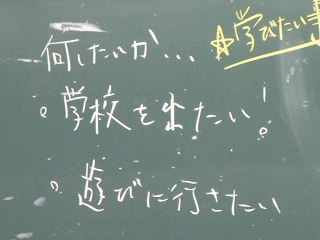 何したいか...
☆学びたい事
。学校を出たい!
。遊びに行きたい